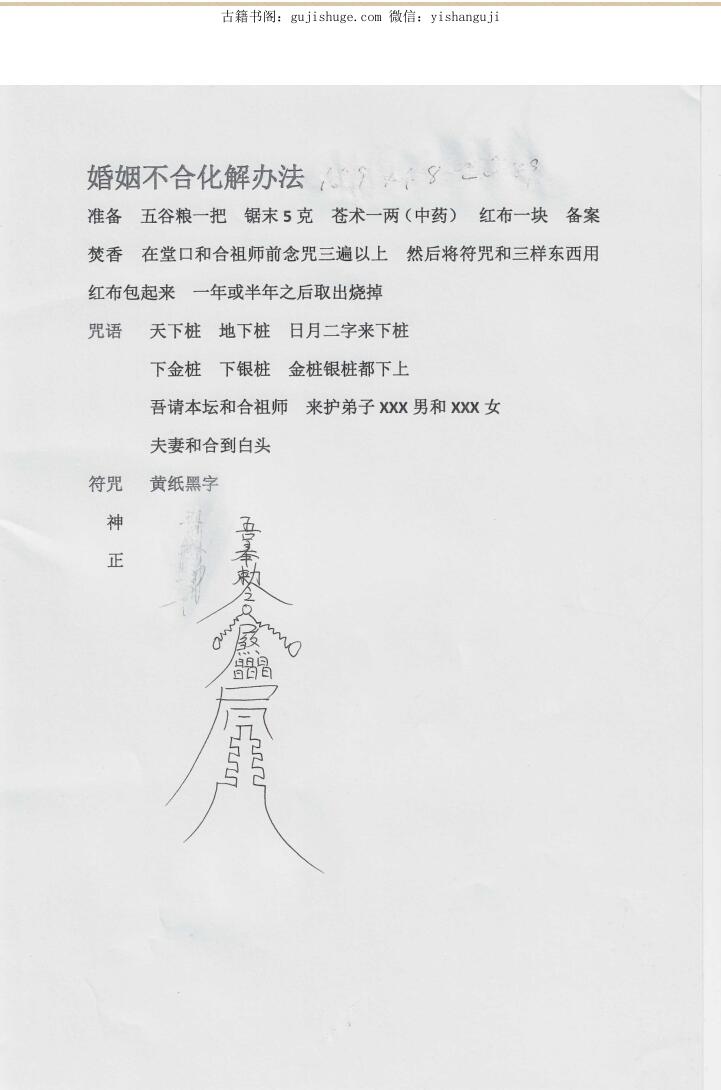 古籍书阁：gujishuge.com 微信：yishanguji
婚姻不合化解办法
准备 五谷粮一把 锯末 5 克 苍术一两（中药） 红布一块 备案
焚香 在堂口和合祖师前念咒三遍以上 然后将符咒和三样东西用
红布包起来 一年或半年之后取出烧掉
咒语 天下桩 地下桩 日月二字来下桩
下金桩 下银桩 金桩银桩都下上
吾请本坛和合祖师 来护弟子 XXX 男和 XXX 女
夫妻和合到白头
符咒 黄纸黑字
神
正
吾
奉
勅